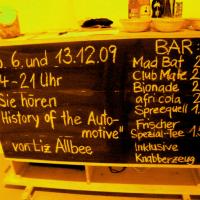 6. und 13.12.09
4-21 Uhr
Sie hören
History of the Auto-
motive"
von Liz Allbee
BAR:
Mad Bat 2
Club Mate 2
Bionade 2
afri cola 2
Spreequell 1
Frischer
Spezial-Tee 1
Inklusive
Knabberzeug